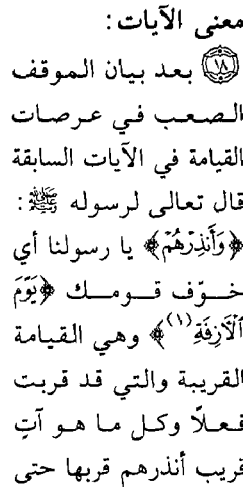 معنى الآيات :
﴿١٨﴾ بعد بيان الموقف
الصعب في عرصات
القيامة في الآيات السابقة
قال تعالى لرسوله ﷺ :
﴿وَأَنذِرْهُمْ﴾ يا رسولنا أي
خوّف قومك ﴿يَوْمَ
ٱلْآزِفَةِ(١)﴾ وهي القيامة
القريبة والتي قد قربت
فعلًا وكل ما هو آتٍ
قريب أنذرهم قربها حتى